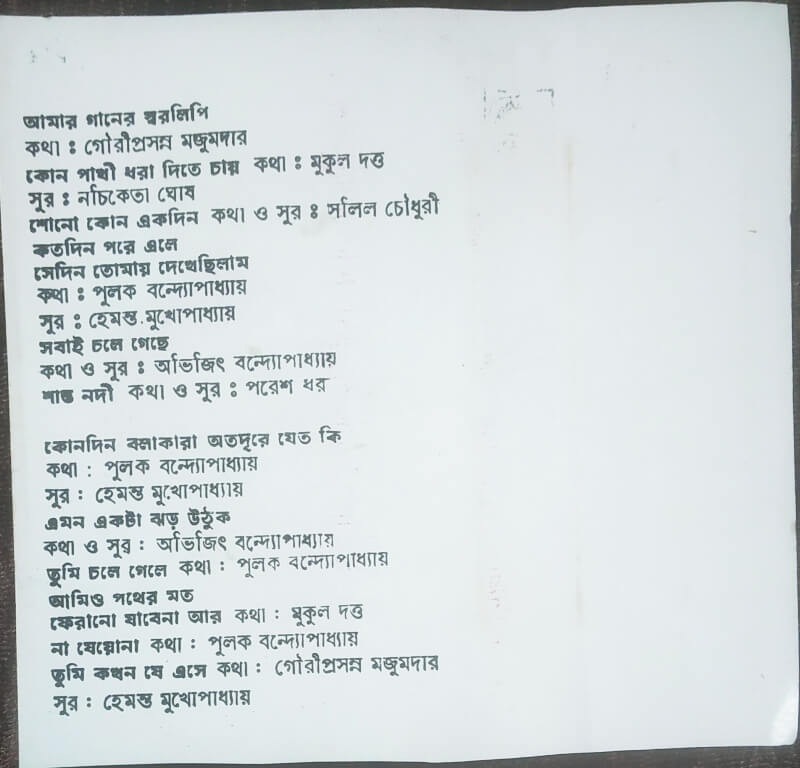 আমার গানের স্বরলিপি
কথা : গৌরীপ্রসন্ন মজুমদার
কোন পাখী ধরা দিতে চায় কথা : মুকুল দত্ত
সুর : নচিকেতা ঘোষ
শোনো কোন একদিন কথা ও সুর : সলিল চৌধুরী
কতদিন পরে এলে
সেদিন তোমায় দেখেছিলাম
কথা : পুলক বন্দ্যোপাধ্যায়
সুর : হেমন্ত মুখোপাধ্যায়
সবাই চলে গেছে
কথা ও সুর : অভিজিৎ বন্দ্যোপাধ্যায়
শান্ত নদী কথা ও সুর : পরেশ ধর
কোনদিন বলাকারা অতদূরে যেত কি
কথা : পুলক বন্দ্যোপাধ্যায়
সুর : হেমন্ত মুখোপাধ্যায়
এমন একটা ঝড় উঠুক
কথা ও সুর : অভিজিৎ বন্দ্যোপাধ্যায়
তুমি চলে গেলে কথা : পুলক বন্দ্যোপাধ্যায়
আমিও পথের মত
ফেরানো যাবেনা আর কথা : মুকুল দত্ত
না যেয়োনা কথা : পুলক বন্দ্যোপাধ্যায়
তুমি কখন যে এসে কথা : গৌরীপ্রসন্ন মজুমদার
সুর : হেমন্ত মুখোপাধ্যায়